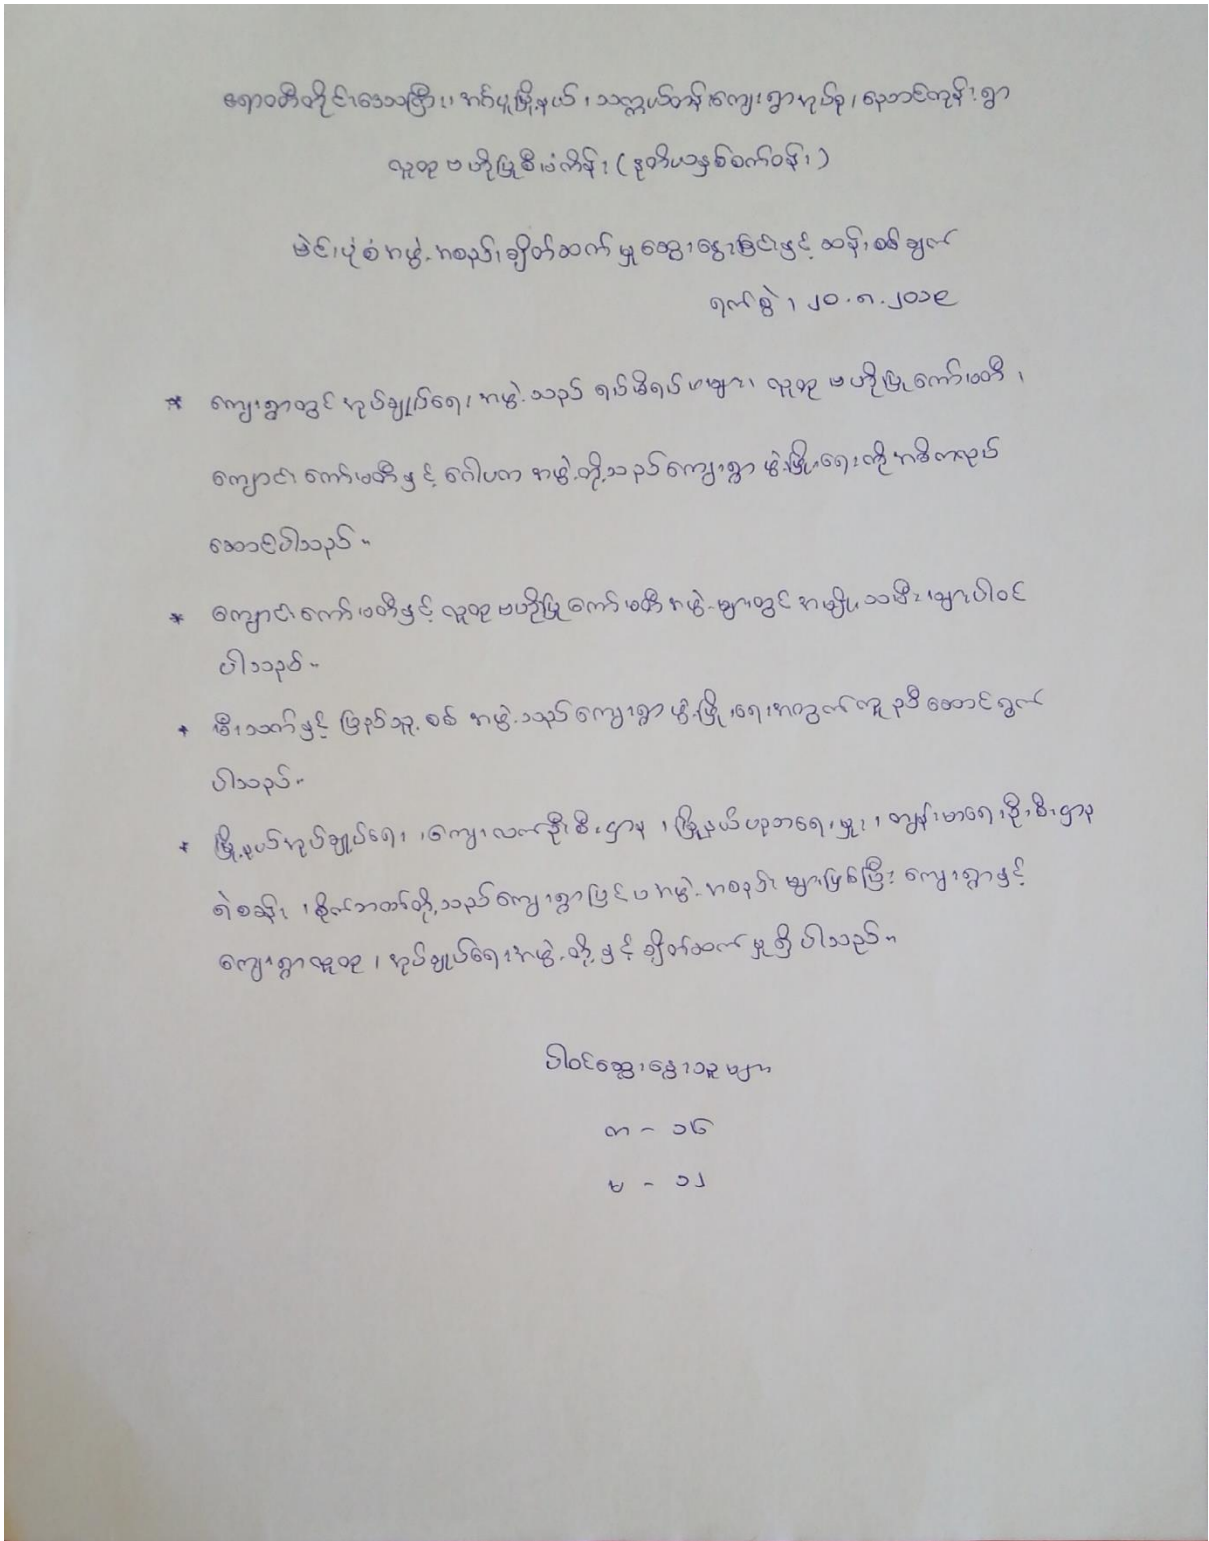 ဧရာဝတီတိုင်းဒေသကြီး၊ အင်ပူမြို့နယ်၊ သက္ကယ်တန်းကျေးရွာအုပ်စု၊ ညောင်ကုန်းရွာ
လူထုဗဟိုပြုစီမံကိန်း (ဒုတိယနှစ်စက်ဝန်း)
မဲင်းပုံစံအဖွဲ့အစည်းချိတ်ဆက်မှုဆွေးနွေးခြင်းနှင့် ဆန်းစစ်ချက်
ရက်စွဲ ၊ ၂၀.၈.၂၀၁၉
* ကျေးရွာတွင် အုပ်ချုပ်ရေးအဖွဲ့သည် ရပ်မိရပ်ဖများ၊ လူထုဗဟိုပြုကော်မတီ ၊
ကျောင်းကော်မတီနှင့် ဂေါပကအဖွဲ့တို့သည် ကျေးရွာဖွံ့ဖြိုးရေးကို အဓိကလုပ်
ဆောင်ပါသည်။
* ကျောင်းကော်မတီနှင့် လူထုဗဟိုပြုကော်မတီအဖွဲ့များတွင် အမျိုးသမီးများပါဝင်
ပါသည်။
* မီးသတ်နှင့် ပြည်သူ့စစ်အဖွဲ့သည် ကျေးရွာဖွံ့ဖြိုးရေးအတွက်ကူညီဆောင်ရွက်
ပါသည်။
* မြို့နယ်အုပ်ချုပ်ရေး ၊ ကျေးလက်ဦးစီးဌာန ၊ မြို့နယ်ပညာရေးမှူး ၊ ကျန်းမာရေးဦးစီးဌာန
ရဲစခန်း ၊ စိုက်ဘဏ်တို့သည် ကျေးရွာပြင်ပအဖွဲ့အစည်းများဖြစ်ပြီး ကျေးရွာနှင့်
ကျေးရွာလူထု ၊ အုပ်ချုပ်ရေးအဖွဲ့တို့နှင့် ချိတ်ဆက်မှုရှိပါသည်။
ပါဝင်ဆွေးနွေးသူများ
က - ၁၆
မ - ၁၂